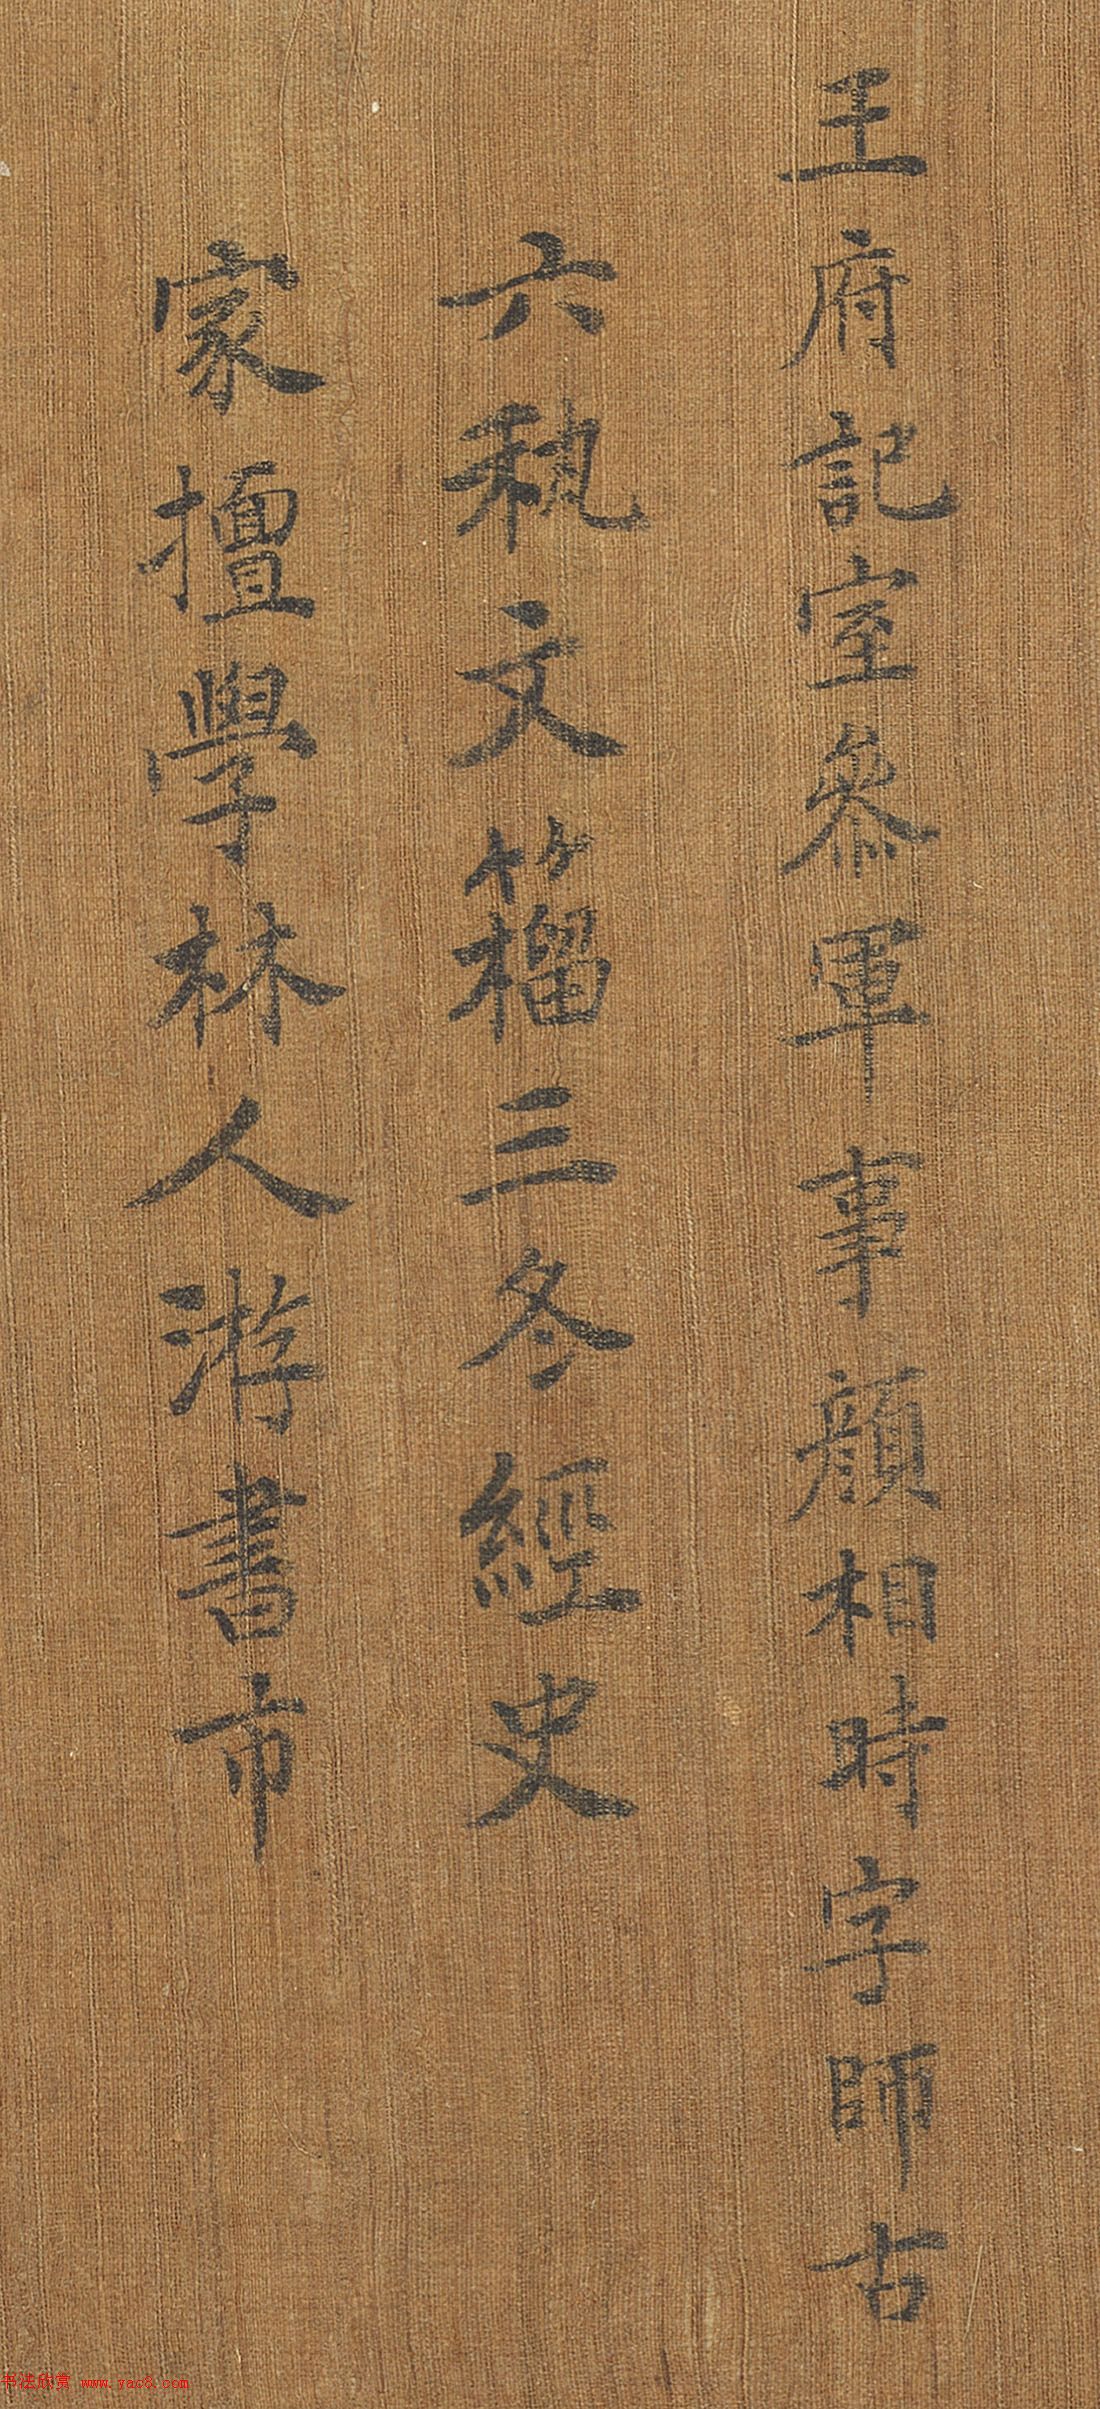 王府記室參軍事顏相時字師古
六執文籀三冬經史
家擅學林人游書市
书法欣赏 www.yac8.com